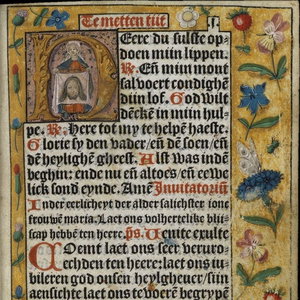 Te metten tiit
Heere du sulste op
doen miin lippen.
Re. Eñ miin mont
sal voort condighẽ
diin lof. God wilt
dẽckẽ in miin hul-
pe. Re. Here tot my te helpẽ haeste.
Glorie sy den vader/ eñ dẽ soen/ eñ
dẽ heylighẽ gheest. Alst was indẽ
beghin: ende nu eñ altoes/ eñ eewe
lick sond eynde. Amẽ Invitatoriũ
In der eerlicheyt der alder salichster ionc
frouwẽ maria. Laet ons volhertelike bliis
cap hebbẽ ten heere. ps. Venite exulte
Coemt laet ons seer veruro-
echden ten heere: laet ons iu-
bileren god onsen heylgheuer/ siin
aensichte laet ons te voerẽ begrypẽ